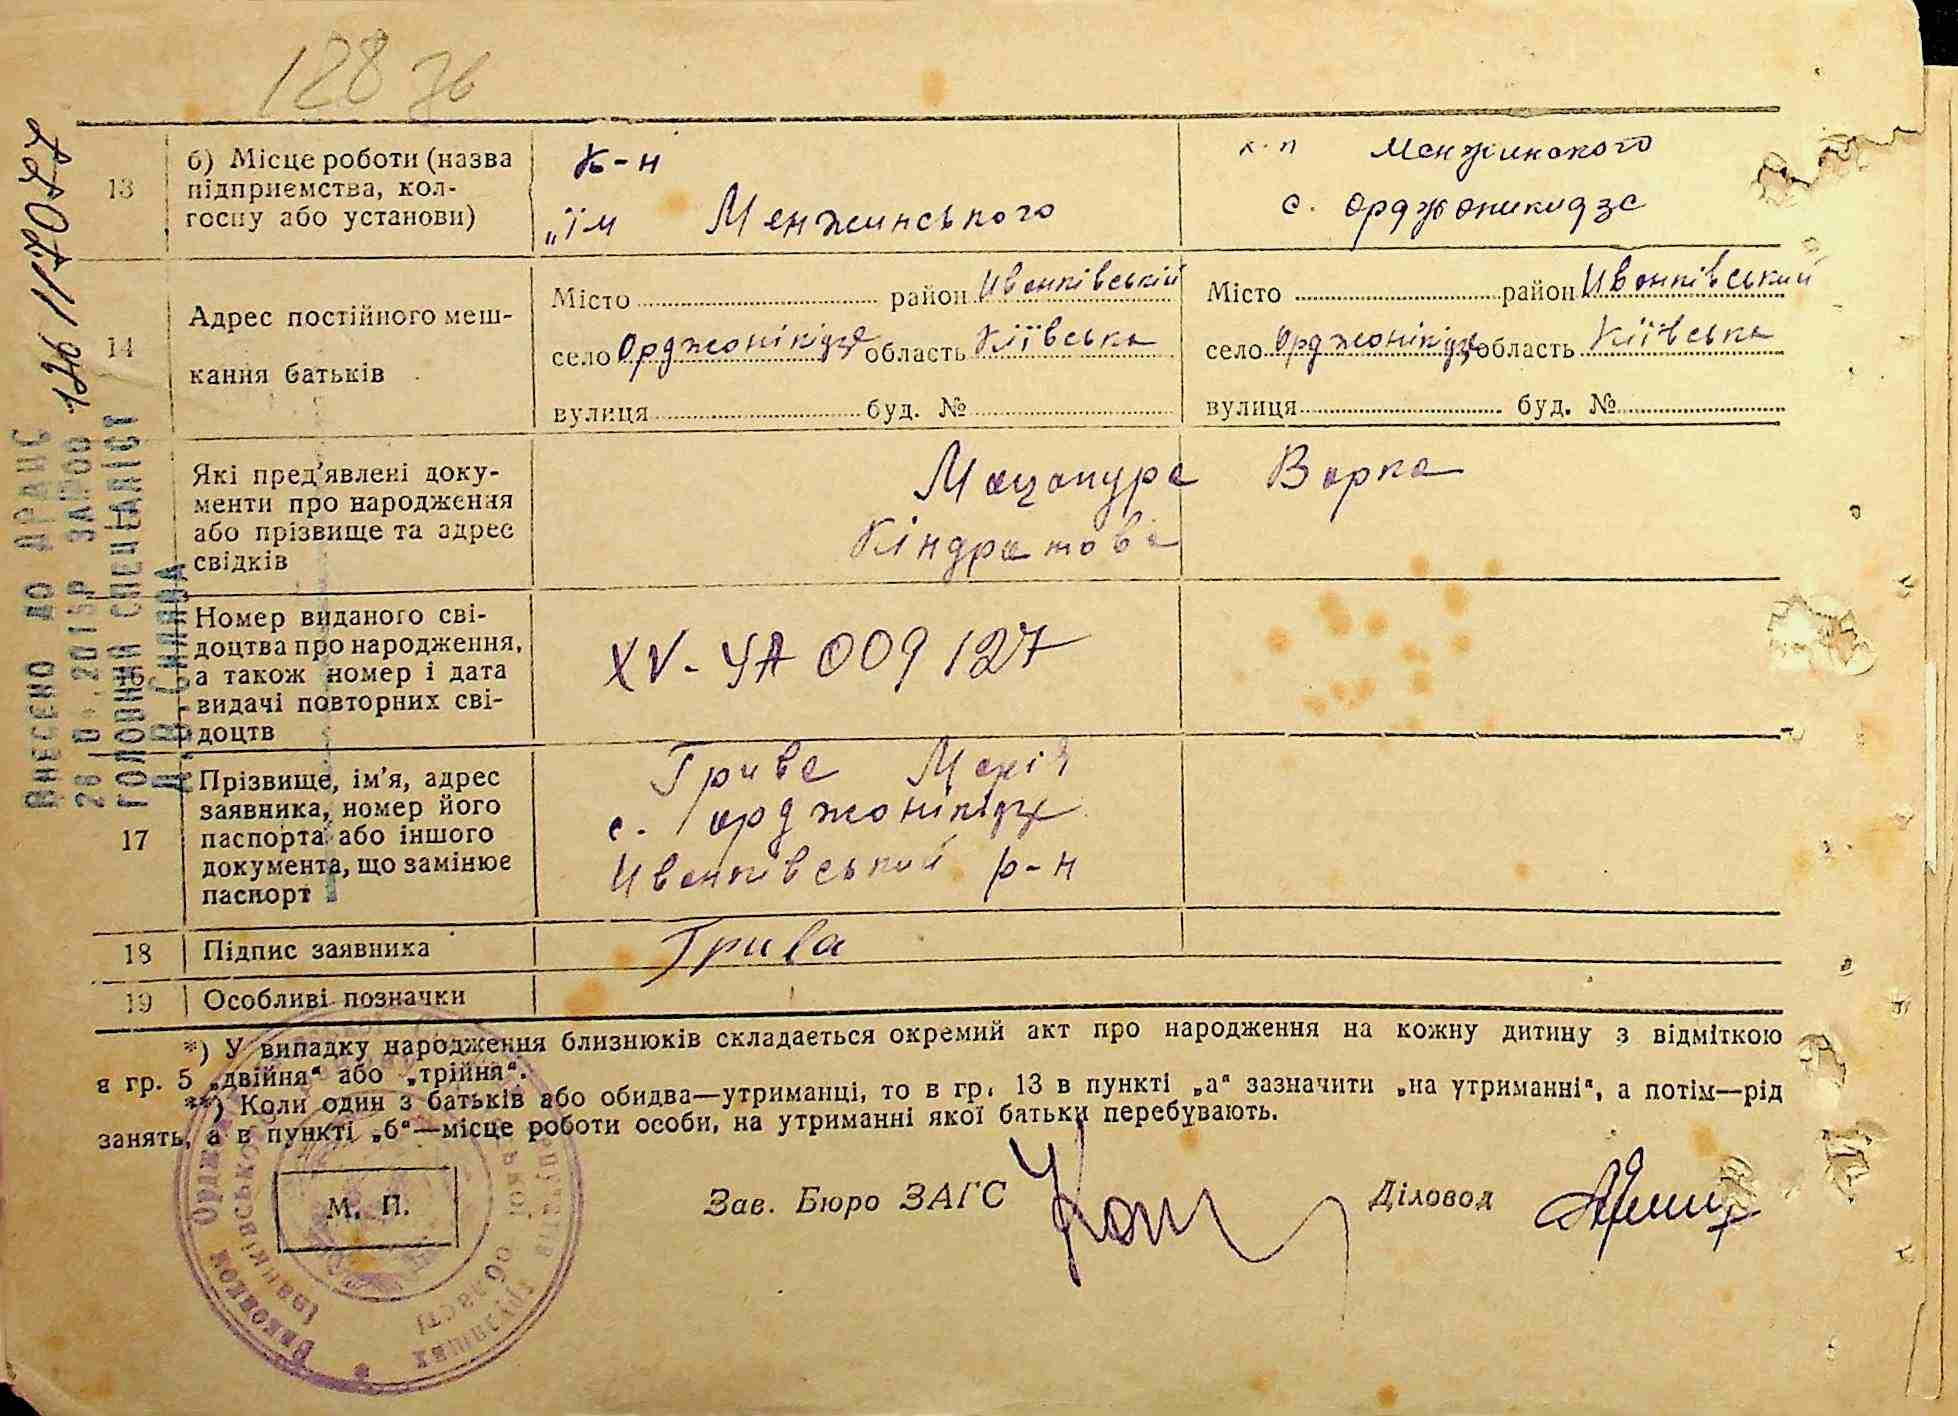 128 76
13
б) Місце роботи (назва
підприємства, кол-
госпу або установи)
к-н
„їм Менжинського
к-п Менжинского
с. Орджоникидзе
14
Адрес постійного меш-
кання батьків
Місто район Ивонківський
село Орджонікідзе область Київська
вулиця буд. №
Місто район Ивонківський
село Орджонікідзе область Київська
вулиця буд. №
Які пред’явлені доку-
менти про народження
або прізвище та адрес
свідків
Мацапура Ворка
Кіндратова
16
Номер виданого сві-
доцтва про народження,
а також номер і дата
видачі повторних сві-
доцтв
XV-УА 009127
17
Прізвище, ім’я, адрес
заявника, номер його
паспорта або іншого
документа, що замінює
паспорт
Грива Марія
с. Орджонікідзе
Ивонківський р-н
18
Підпис заявника
Грива
19
Особливі позначки
*) У випадку народження близнюків складається окремий акт про народження на кожну дитину з відміткою
в гр. 5 „двійня“ або „трійня“.
**) Коли один з батьків або обидва—утриманці, то в гр. 13 в пункті „а“ зазначити „на утриманні“, а потім—рід
занять, а в пункті „б“—місце роботи особи, на утриманні якої батьки перебувають.
М. П.
Зав. Бюро ЗАГС
Діловод
Виконком
області
ВНЕСЕНО ДО ДРАЦС
ГОЛОВНИЙ СПЕЦІАЛІСТ